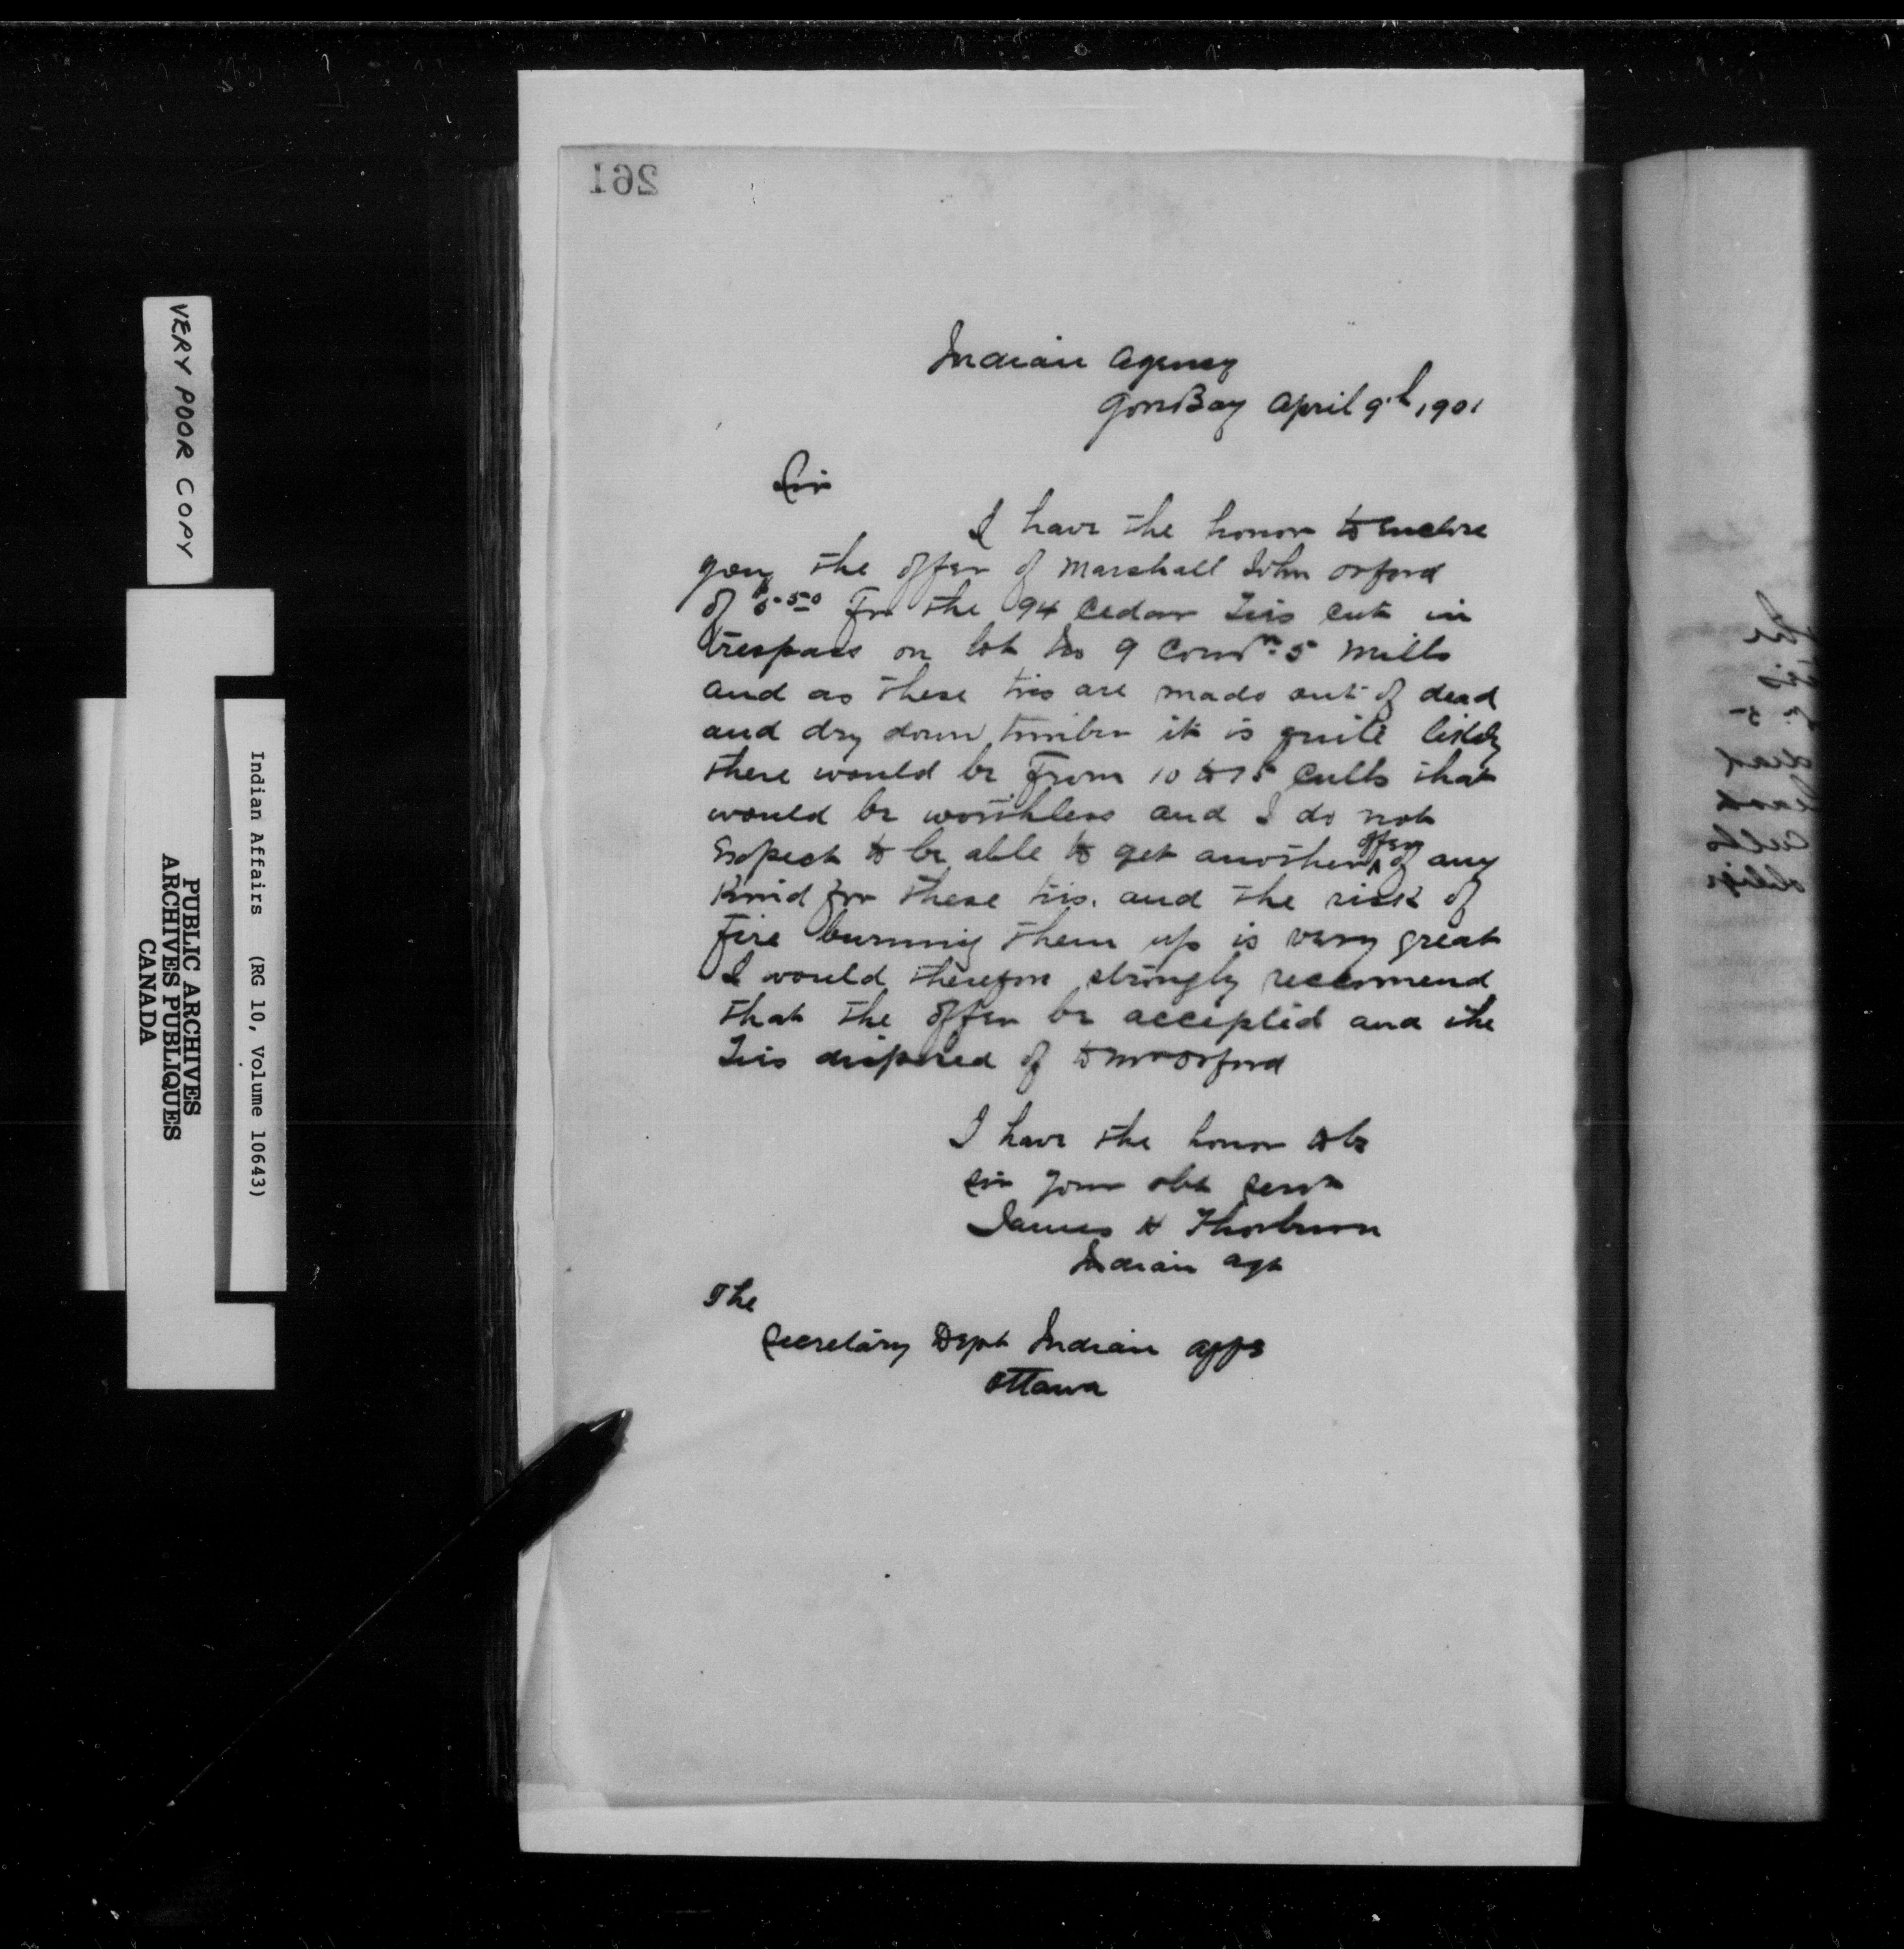 261
Indian Agency
Gore Bay April 9th, 1901
Sir
I have the honor to enclose
you the offer of Marshall John Orford
of $5.50 For the 94 Cedar Ties cut in
trespass on lot No 9 Conn 5 Mills
and as these ties are made out of dead
and dry down timber it is quite likely
there would be From 10 to 15 Culls that
would be worthless and I do not
Expect to be able to get another offer of any
Kind for these ties. and the risk of
Fire burning them up is very great
I would therefore strongly recommend
that the offer be accepted and the
Ties disposed of to Mr Orford
I have the honor to be
Sir your obt Servt
James H Thorburn
Indian Agt
The
Secretary Dept Indian Affs
Ottawa
VERY POOR COPY
Indian Affairs (RG 10, Volume 10643)
PUBLIC ARCHIVES
ARCHIVES PUBLIQUES
CANADA